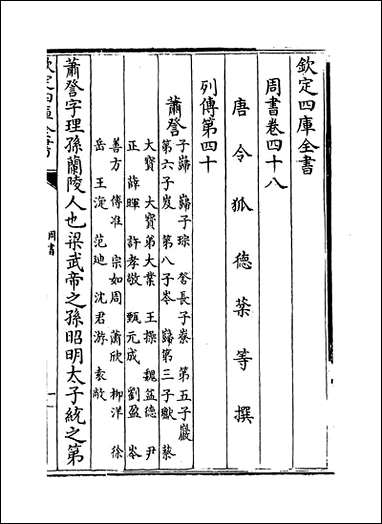 欽定四庫全書
周書卷四十八
唐令狐德棻等撰
列傳第四十
蕭詧子巋 巋子琮 詧長子嶚 第五子巖
第六子岌 第八子岑 巋第三子瓛 蔡
大寶 大寶弟大業 王操 魏益德 尹
正 薛暉 許孝敬 甄元成 劉盈 岑
善方 傅准 宗如周 蕭欣 柳洋 徐
岳 王淀 范迪 沈君游 袁敞
蕭詧字理孫蘭陵人也梁武帝之孫昭明太子統之第
欽定四庫全書
周書